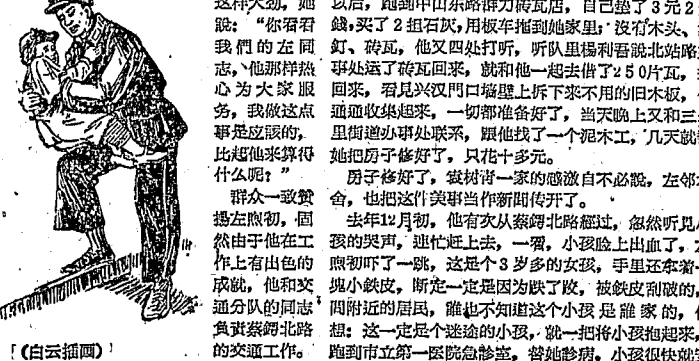 这样大劲，她
說：“你看看
我們的左同
志，他那样热
心为大家服
务，我做这点
事是应該的，
比起他来算得
什么呢？”
群众一致贊
揚左煦初，固
然由于他在工
作上有出色的
成就，他和交
通分队的同志
負責蔡鍔北路
的交通工作。
以后，跑到中山东路群力砖瓦店，自己垫了3元2
錢，买了2担石灰，用板车拖到她家里；没有木头、
釘、砖瓦，他又四处打听，听队里楊利吾說北站路
事处运了砖瓦回来，就和他一起去借了250片瓦，
回来，看見兴汉門口墙壁上拆下来不用的旧木板，
通通收集起来，一切都准备好了，当天晚上又和三
里街道办事处联系，跟他找了一个泥木工，几天就
她把房子修好了，只花十多元。
房子修好了，袁树青一家的感激自不必說，左邻
舍，也把这件美事当作新聞传开了。
去年12月初，他有次从蔡鍔北路經过，忽然听見
孩的哭声，連忙赶上去，一看，小孩脸上出血了，
煦初吓了一跳，这是个3岁多的女孩，手里还拿着
块小鉄皮，断定一定是因为跌了跤，被鉄皮刮破的，
問附近的居民，誰也不知道这个小孩是誰家的，
想：这一定是个迷途的小孩，就一把将小孩抱起来，
跑到市立第一医院急診室，替她診病，小孩很快就
（白云插画）